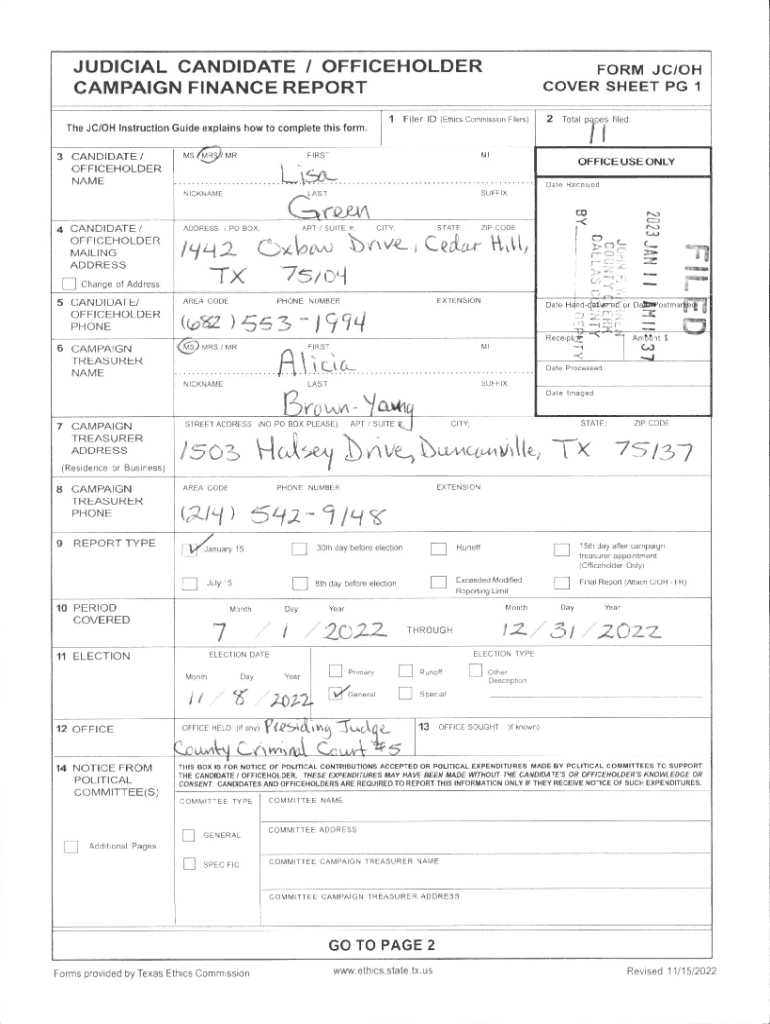 JUDICIAL CANDIDATE / OFFICEHOLDER
CAMPAIGN FINANCE REPORT
FORM JC/OH
COVER SHEET PG 1
The JC/OH Instruction Guide explains how to complete this form.
1 Filer ID (Ethics Commission Filers)
2 Total pages filed:
11
3 CANDIDATE /
OFFICEHOLDER
NAME
MS / MRS / MR
FIRST
MI
Lisa
NICKNAME
LAST
SUFFIX
Green
OFFICE USE ONLY
Date Received
FILED
2023 JAN 11 AM 11:37
COUNTY CLERK
DALLAS COUNTY
BY DEPUTY
4 CANDIDATE /
OFFICEHOLDER
MAILING
ADDRESS
Change of Address
ADDRESS / PO BOX; APT / SUITE #; CITY; STATE; ZIP CODE
1442 Oxbow Drive, Cedar Hill,
TX 75104
5 CANDIDATE/
OFFICEHOLDER
PHONE
AREA CODE PHONE NUMBER EXTENSION
(682) 553-1994
Date Hand-delivered or Date Postmarked
Receipt # Amount $
Date Processed
Date Imaged
6 CAMPAIGN
TREASURER
NAME
MS / MRS / MR
FIRST
MI
Alicia
NICKNAME
LAST
SUFFIX
Brown-Young
7 CAMPAIGN
TREASURER
ADDRESS
(Residence or Business)
STREET ADDRESS (NO PO BOX PLEASE); APT / SUITE #; CITY; STATE; ZIP CODE
1503 Halsey Drive, Duncanville, TX 75137
8 CAMPAIGN
TREASURER
PHONE
AREA CODE PHONE NUMBER EXTENSION
(214) 542-9148
9 REPORT TYPE
January 15
30th day before election
Runoff
15th day after campaign
treasurer appointment
(Officeholder Only)
July 15
8th day before election
Exceeded Modified
Reporting Limit
Final Report (Attach C/OH - FR)
10 PERIOD
COVERED
Month Day Year
7 / 1 / 2022
THROUGH
Month Day Year
12/ 31 / 2022
11 ELECTION
ELECTION DATE
Month Day Year
11 / 8 / 2022
ELECTION TYPE
Primary
Runoff
Other
Description
General
Special
12 OFFICE
OFFICE HELD (if any) Presiding Judge
County Criminal Court #5
13 OFFICE SOUGHT (if known)
14 NOTICE FROM
POLITICAL
COMMITTEE(S)
Additional Pages
THIS BOX IS FOR NOTICE OF POLITICAL CONTRIBUTIONS ACCEPTED OR POLITICAL EXPENDITURES MADE BY POLITICAL COMMITTEES TO SUPPORT
THE CANDIDATE / OFFICEHOLDER. THESE EXPENDITURES MAY HAVE BEEN MADE WITHOUT THE CANDIDATE'S OR OFFICEHOLDER'S KNOWLEDGE OR
CONSENT. CANDIDATES AND OFFICEHOLDERS ARE REQUIRED TO REPORT THIS INFORMATION ONLY IF THEY RECEIVE NOTICE OF SUCH EXPENDITURES.
COMMITTEE TYPE
COMMITTEE NAME
GENERAL
COMMITTEE ADDRESS
SPECIFIC
COMMITTEE CAMPAIGN TREASURER NAME
COMMITTEE CAMPAIGN TREASURER ADDRESS
GO TO PAGE 2
Forms provided by Texas Ethics Commission
www.ethics.state.tx.us
Revised 11/15/2022